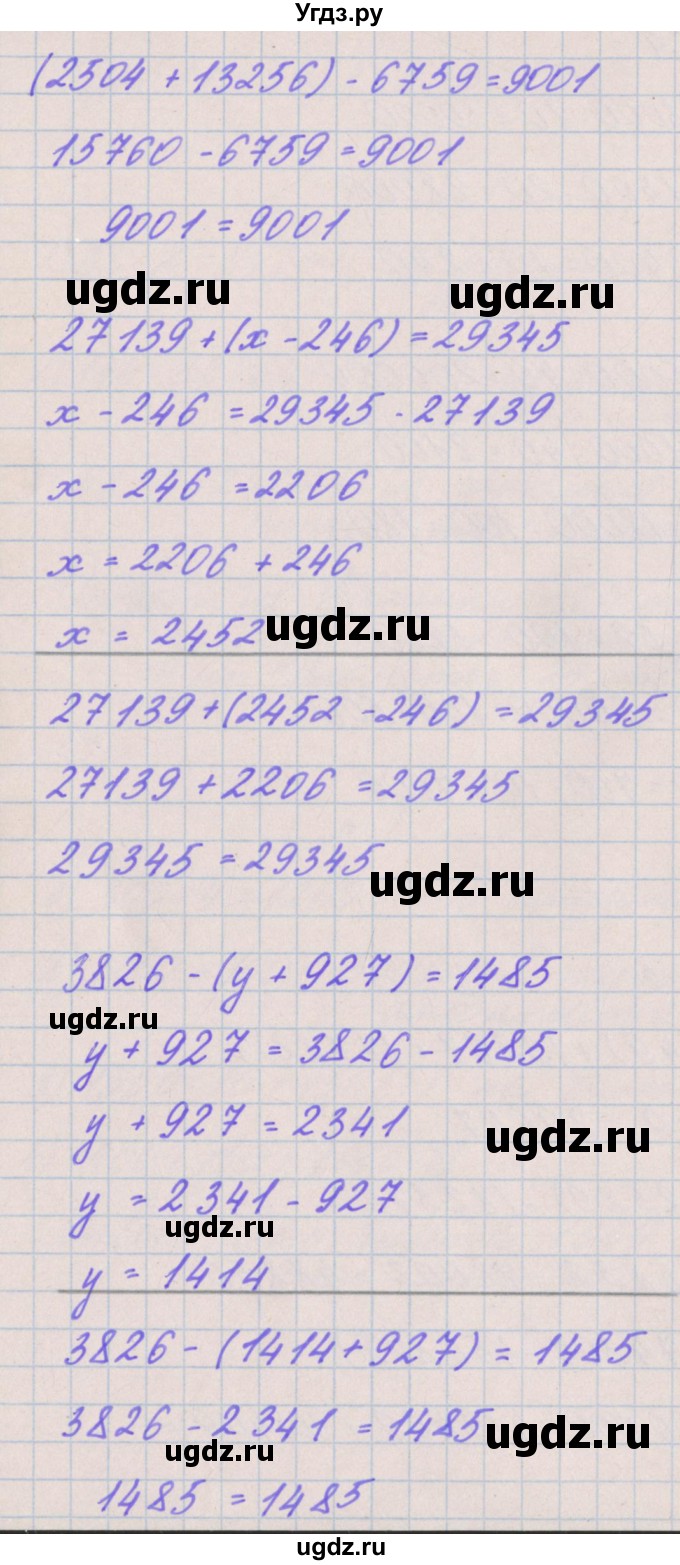 Угдз.ру
(2504 + 13256) - 6759 = 9001
15760 - 6759 = 9001
9001 = 9001
ugdz.ru
ugdz.ru
27139 + (x - 246) = 29345
x - 246 = 29345 - 27139
x - 246 = 2206
x = 2206 + 246
x = 2452
ugdz.ru
27139 + (2452 - 246) = 29345
27139 + 2206 = 29345
29345 = 29345
ugdz.ru
3826 - (y + 927) = 1485
ugdz.ru
y + 927 = 3826 - 1485
y + 927 = 2341
ugdz.ru
y = 2341 - 927
ugdz.ru
y = 1414
3826 - (1414 + 927) = 1485
3826 - 2341 = 1485
ugdz.ru
ugdz.ru
1485 = 1485
ugdz.ru